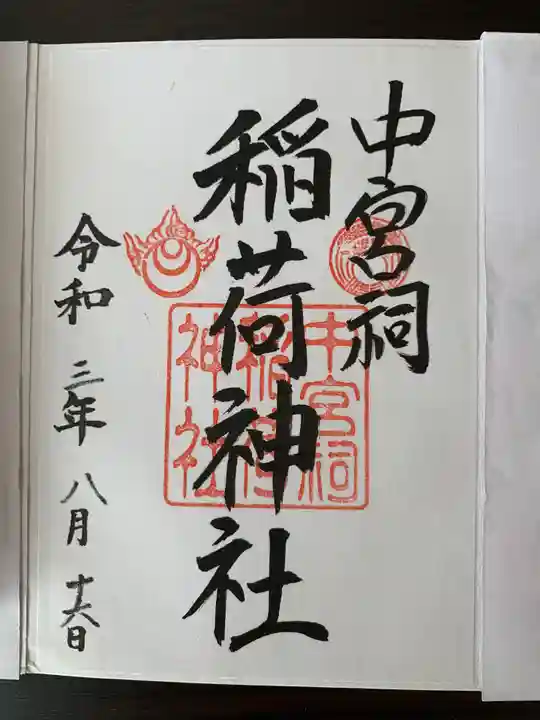 中宮祠
稲荷神社
令和三年八月十六日
中宮祠
稲荷
神社